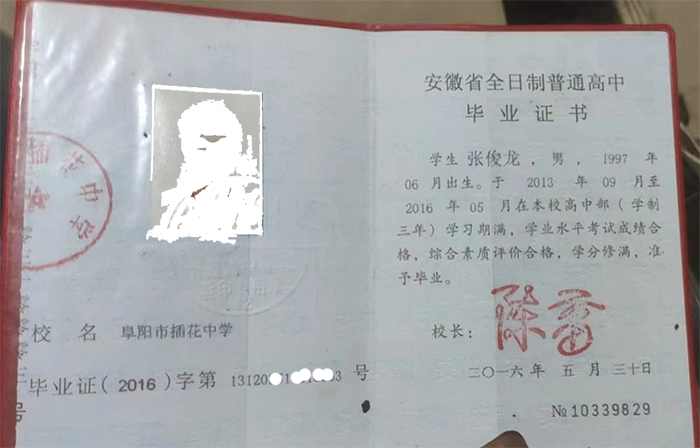 插花中学
校 名 阜阳市插花中学
毕业证(2016)字第 13120 号
安徽省全日制普通高中
毕业证书
学生 张俊龙，男，1997 年
06 月出生。于 2013 年 09 月至
2016 年 05 月在本校高中部（学制
三年）学习期满，学业水平考试成绩合
格，综合素质评价合格，学分修满，准
予毕业。
校长：
二〇一六年 五 月 三十日
№10339829